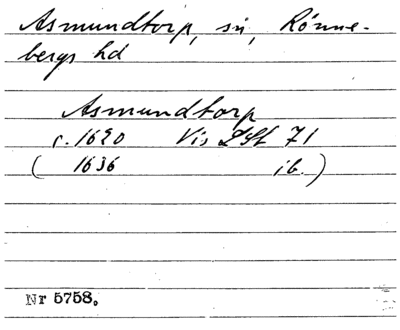 Asmundtorp, sn, Rönne-
bergs hd
Asmundtorp
c. 1620 Vis LSt 71
( 1636 ib. )
Nr 5758.